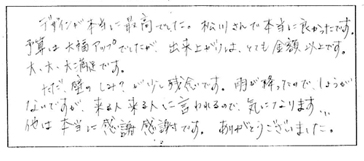 デザインが本当に最高でした。松川さんで本当に良かったです。
予算は大幅アップでしたが、出来上がりは、とても金額以上です。
大・大・大満足です。
ただ、壁のしみ?が少し残念です。雨が降ったので、しょうが
ないですが、来る人来る人に言われるので、気になります…
他は本当に感謝感謝です。ありがとうございました。